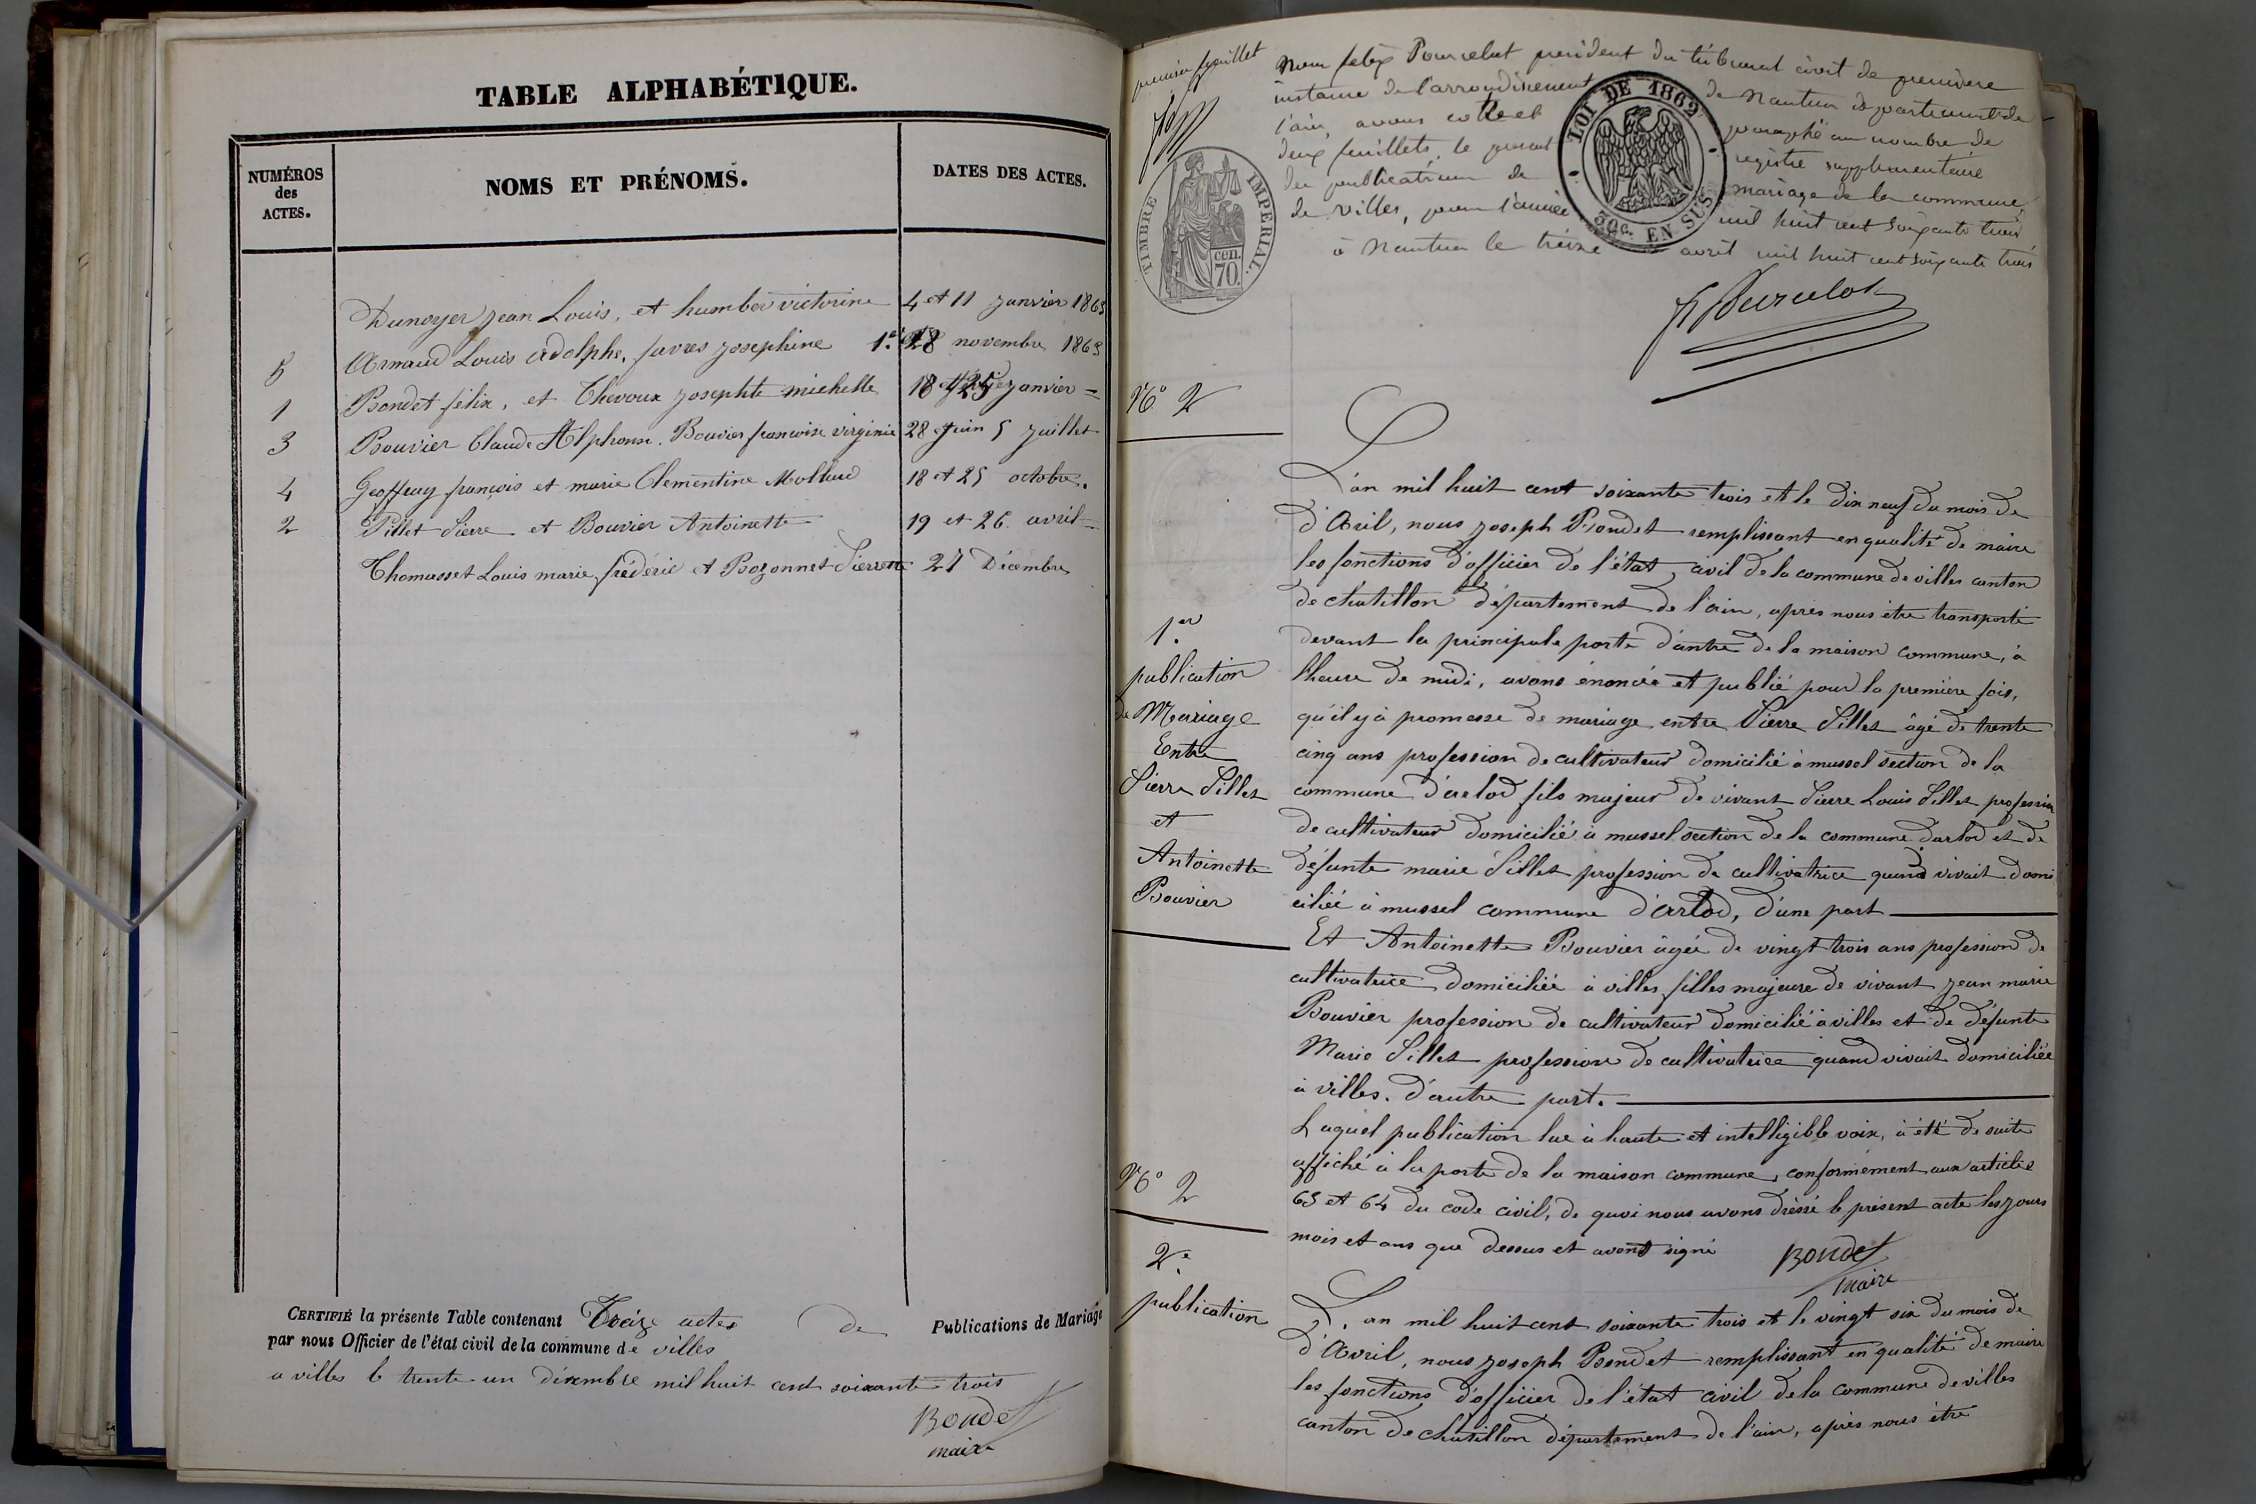 TABLE ALPHABÉTIQUE.
NUMÉROS
des
ACTES.
NOMS ET PRÉNOMS.
DATES DES ACTES.
Dunoyer Jean Louis, et humber victorine 4 et 11 janvier 1863
5 Arnaud Louis Adolphe, favres josephine 1re 28 novembre 1863
1 Bondet félix, et Chevoux josephte michelle 18 et 25 janvier =
3 Bouvier Claude Alphonse. Bouvier francoise virginie 28 Juin 5 Juillet
4 Geoffray françois et marie Clementine Molland 18 et 25 octobre.
2 Pillet Pierre et Bouvier Antoinette 19 et 26 avril =
Thomasset Louis marie frédéric et Bozonnet Pierrette 27 Décembre
CERTIFIÉ la présente Table contenant Treize actes de Publications de Mariage
par nous Officier de l'état civil de la commune de villes
a villes le trente-un décembre mil huit cent soixante trois
Bondet
maire
premier feuillet
Nous felix Pourcelot president du tribunal civil de première
instance de l'arrondissement de Nantua departement de
l'ain, avons coté et paraphé au nombre de
deux feuillets, le present registre supplementaire
des publications de mariage de la commune
de villes, pour l'année mil huit cent soixante trois
à Nantua le treize avril mil huit cent soixante trois
TIMBRE IMPERIAL.
cen.
70.
LOI DE 1862
30c. EN SUS
F Pourcelot
No 2
L'an mil huit cent soixante trois et le dix neuf du mois de
d'Avril, nous joseph Bondet remplissant en qualité de maire
les fonctions d'officier de l'état civil de la commune de villes canton
de chatillon département de l'ain, après nous être transporté
devant la principale porte d'antré de la maison commune, à
l'heure de midi, avons énoncée et publié pour la première fois,
qu'il y à promesse de mariage entre Pierre Pillet âgé de trente
cinq ans profession de cultivateur domicilié à mussel section de la
commune d'arlod fils majeur de vivant Pierre Louis Pillet profession
de cultivateur domicilié à mussel section de la commune darlod et de
défunte marie Pillet profession de cultivatrice quand vivait domi
ciliée à mussel commune d'arlod, d'une part
1er
publication
de Mariage
Entre
Pierre Pillet
et
Antoinette
Bouvier
Et Antoinette Bouvier âgée de vingt trois ans profession de
cultivatrice domiciliée à villes filles majeure de vivant jean marie
Bouvier profession de cultivateur domicilié à villes et de défunte
Marie Pillet profession de cultivatrice quand vivait domiciliée
à villes. d'autre part.
Laquel publication lue à haute et intelligible voix, à été de suite
affiché à la porte de la maison commune, conformément aux articles
63 et 64 du code civil, de quoi nous avons dréssé le présent acte les jours
mois et ans que dessus et avont signé
Bondet
maire
No 2
2e
publication
L'an mil huit cent soixante trois et le vingt six du mois de
d'Avril, nous joseph Bondet remplissant en qualité de maire
les fonctions d'officier de l'état civil de la commune de villes
canton de chatillon département de l'ain, après nous être